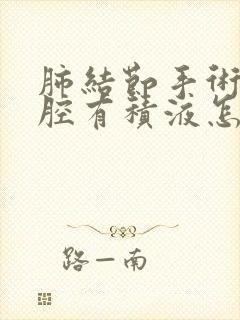 肺結節手術
腔有積液怎
路一南